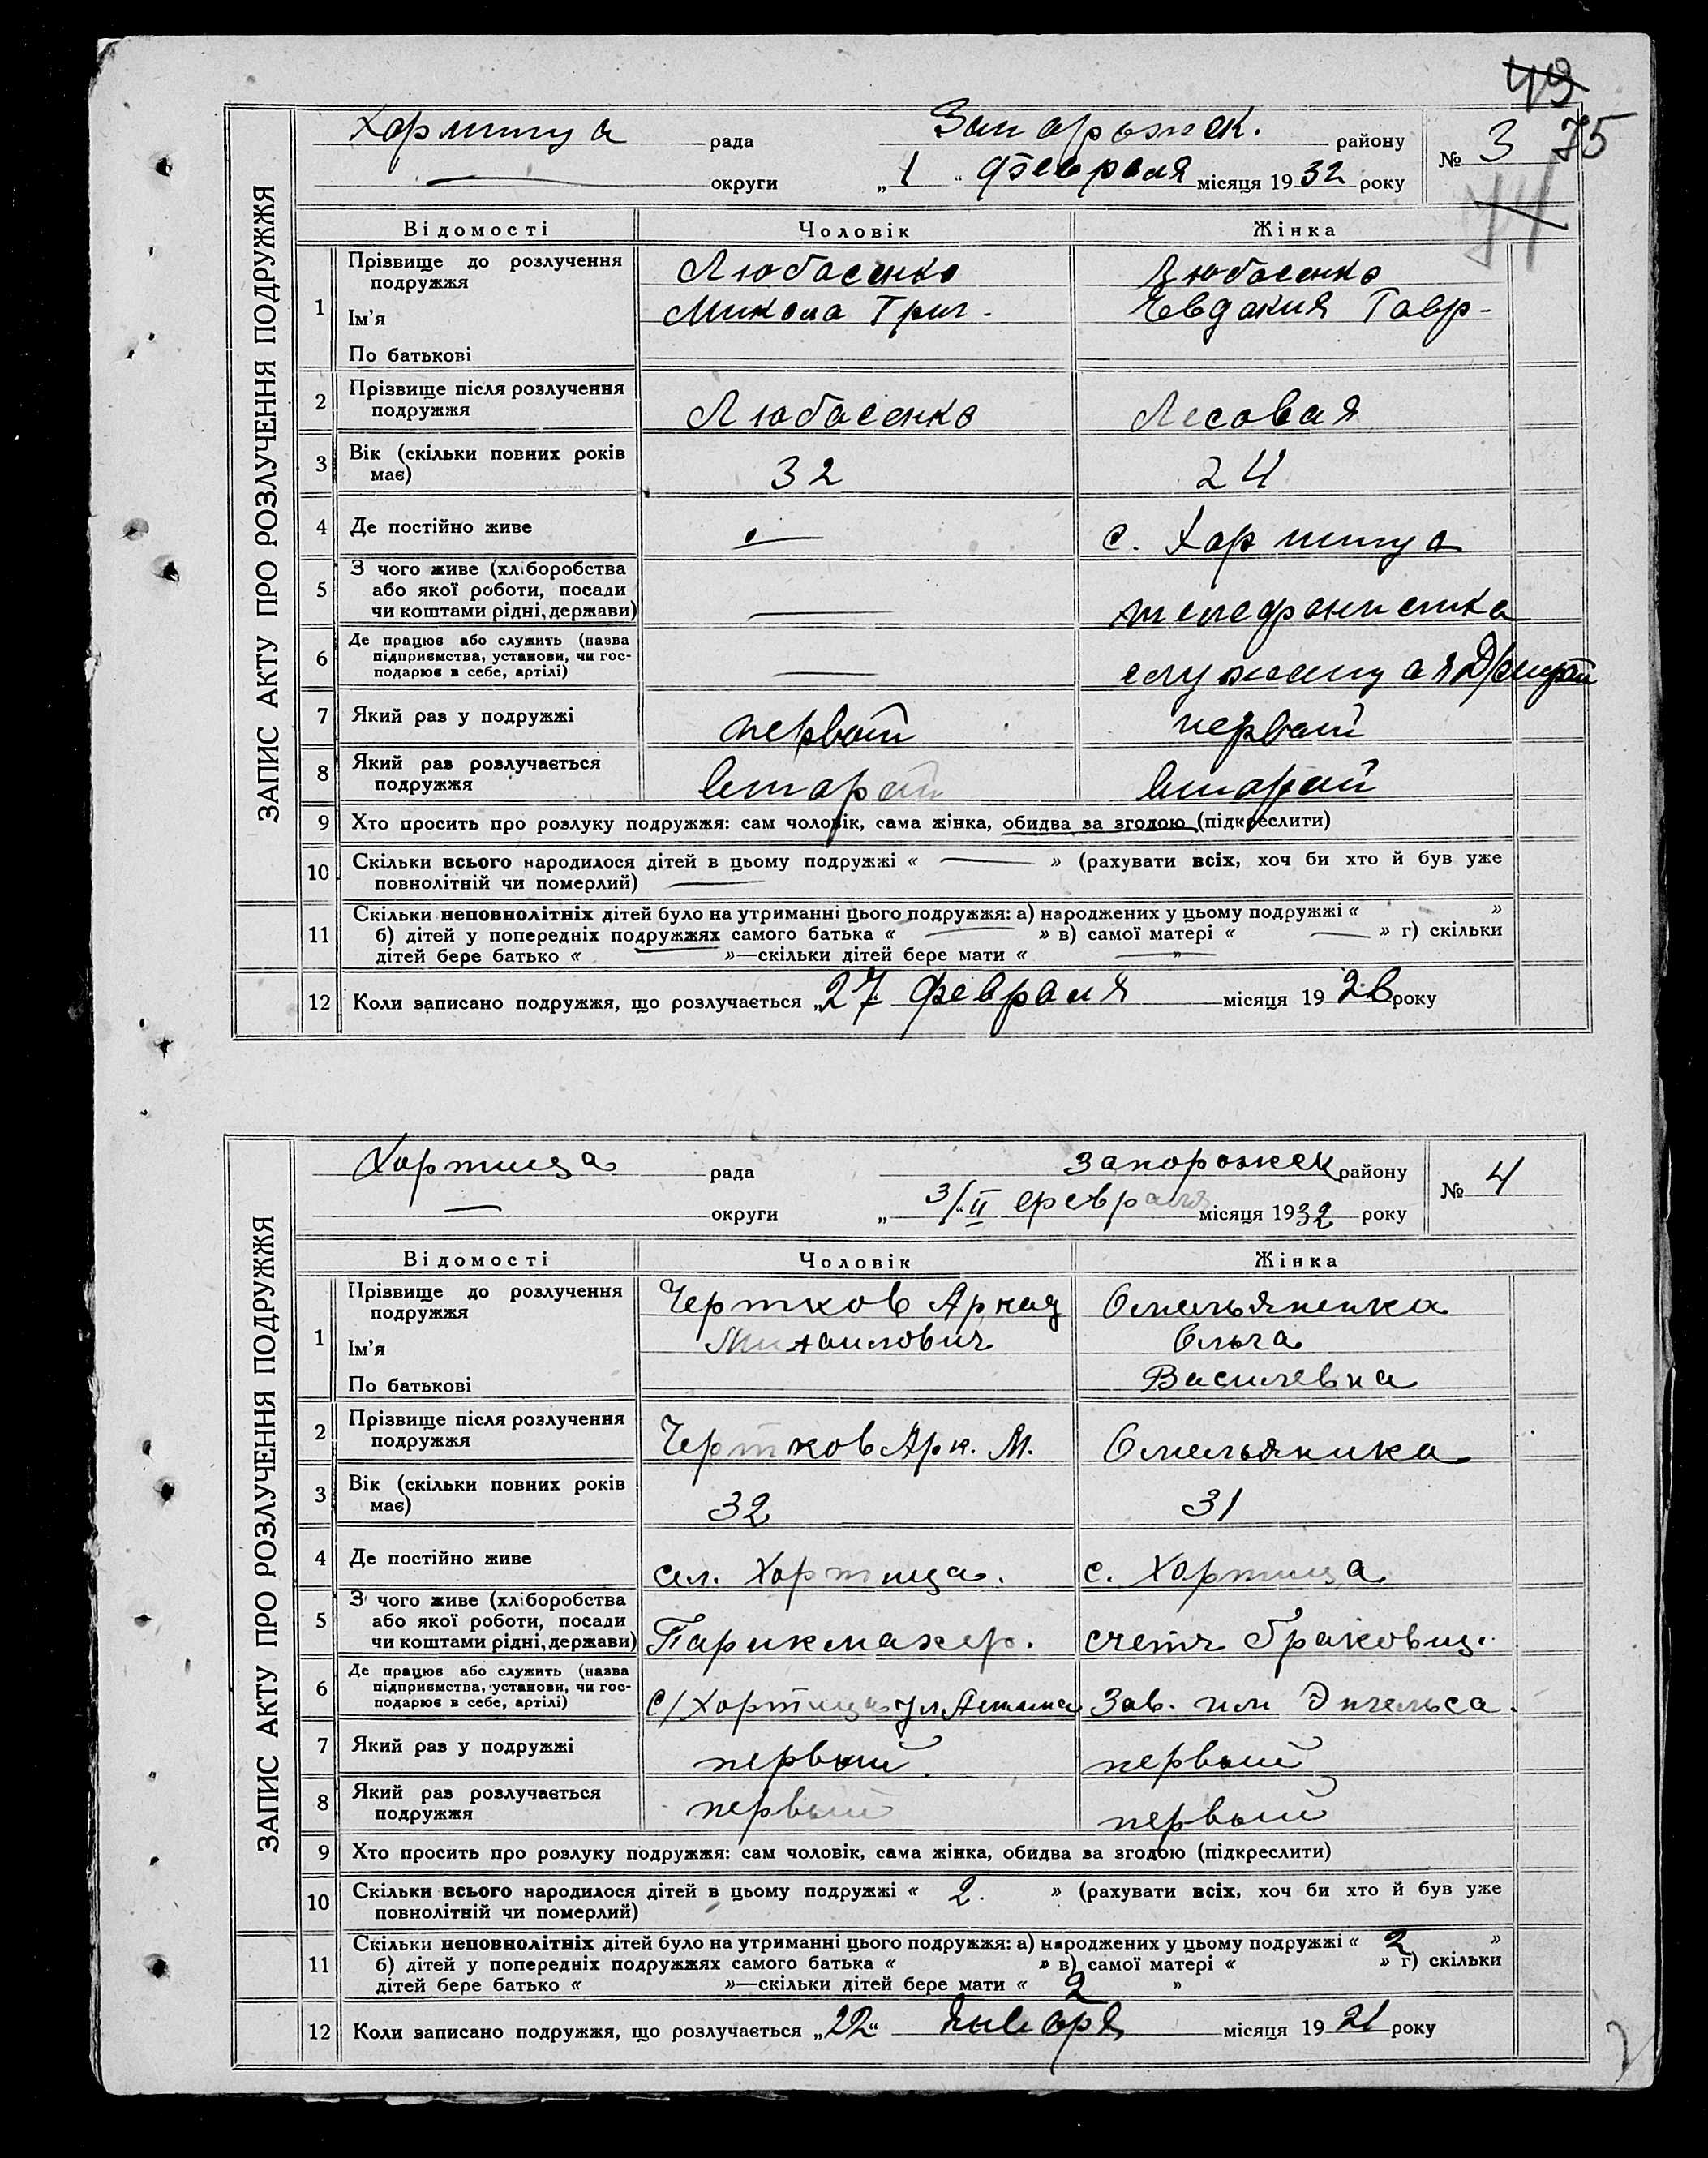 49
75
74
ЗАПИС АКТУ ПРО РОЗЛУЧЕННЯ ПОДРУЖЖЯ
Хортица рада Запорожск. району № 3
— округи „1“ Февраля місяця 1932 року
Відомості Чоловік Жінка
1 Прізвище до розлучення подружжя Любасенко Любасенко
Ім’я Микола Григ. Евдакия Гавр-
По батькові
2 Прізвище після розлучення подружжя Любасенко Лесовая
3 Вік (скільки повних років має) 32 24
4 Де постійно живе — с. Хортица
5 З чого живе (хліборобства або якої роботи, посади чи коштами рідні, держави) — телефонистка
6 Де працює або служить (назва підприємства, установи, чи господарює в себе, артілі) — служащая
7 Який раз у подружжі первый первый
8 Який раз розлучається подружжя вторый вторый
9 Хто просить про розлуку подружжя: сам чоловік, сама жінка, обидва за згодою (підкреслити)
10 Скільки всього народилося дітей в цьому подружжі « — » (рахувати всіх, хоч би хто й був уже
повнолітній чи померлий) —
11 Скільки неповнолітніх дітей було на утриманні цього подружжя: а) народжених у цьому подружжі « »
б) дітей у попередніх подружжях самого батька « — » в) самої матері « — » г) скільки
дітей бере батько « — »—скільки дітей бере мати « — »
12 Коли записано подружжя, що розлучається „27 февраля місяця 1926 року
ЗАПИС АКТУ ПРО РОЗЛУЧЕННЯ ПОДРУЖЖЯ
Хортица рада Запорожск району № 4
— округи „3/II февраля місяця 1932 року
Відомості Чоловік Жінка
1 Прізвище до розлучення подружжя Чертков Аркад Омельяненка
Ім’я Михаилович Ольга
По батькові Василевна
2 Прізвище після розлучення подружжя Чертков Арк. М. Омельяника
3 Вік (скільки повних років має) 32 31
4 Де постійно живе сел. Хортица. с. Хортица
5 З чого живе (хліборобства або якої роботи, посади чи коштами рідні, держави) Парикмахер. счетч браковщ.
6 Де працює або служить (назва підприємства, установи, чи господарює в себе, артілі) С/Хортица ул Ленина Зав. им Энгельса.
7 Який раз у подружжі первый. первый
8 Який раз розлучається подружжя первый первый
9 Хто просить про розлуку подружжя: сам чоловік, сама жінка, обидва за згодою (підкреслити)
10 Скільки всього народилося дітей в цьому подружжі « 2. » (рахувати всіх, хоч би хто й був уже
повнолітній чи померлий)
11 Скільки неповнолітніх дітей було на утриманні цього подружжя: а) народжених у цьому подружжі « 2 »
б) дітей у попередніх подружжях самого батька « » в) самої матері « » г) скільки
дітей бере батько « »—скільки дітей бере мати « 2 »
12 Коли записано подружжя, що розлучається „22“ Января місяця 1921 року